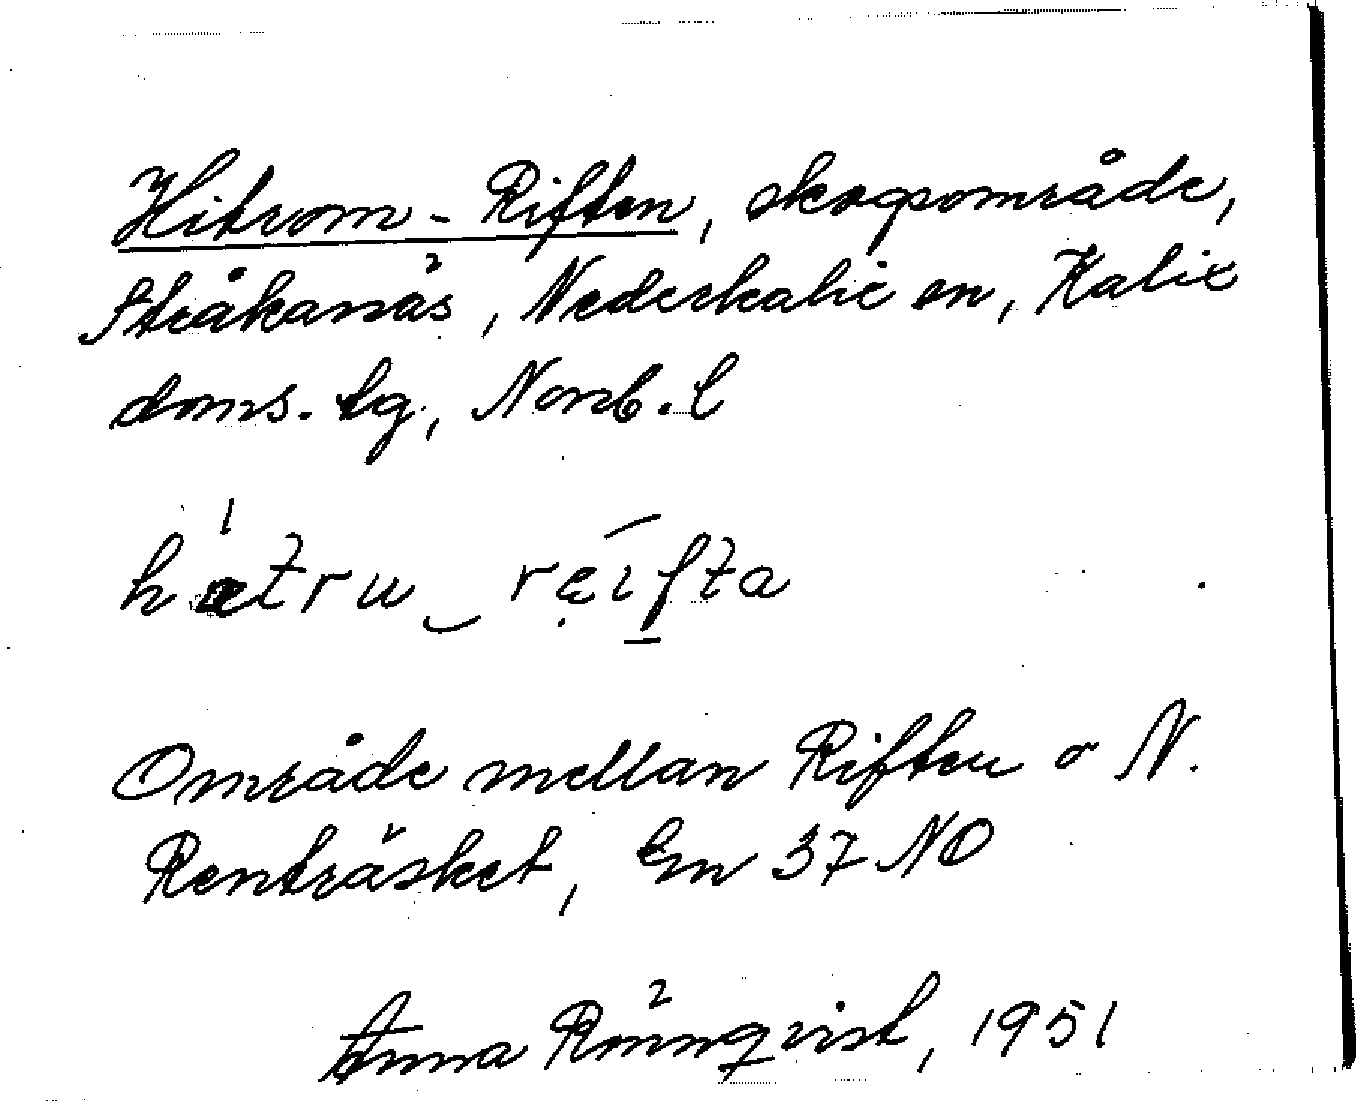 Hitrom-Riften, skogsområde,
Stråkanäs, Nederkalix sn, Kalix
doms. lg., Norrb. l
hitru rẹifta
Område mellan Riften o N.
Renträsket, Gn 37 NO
Anna Rönnqvist, 1951